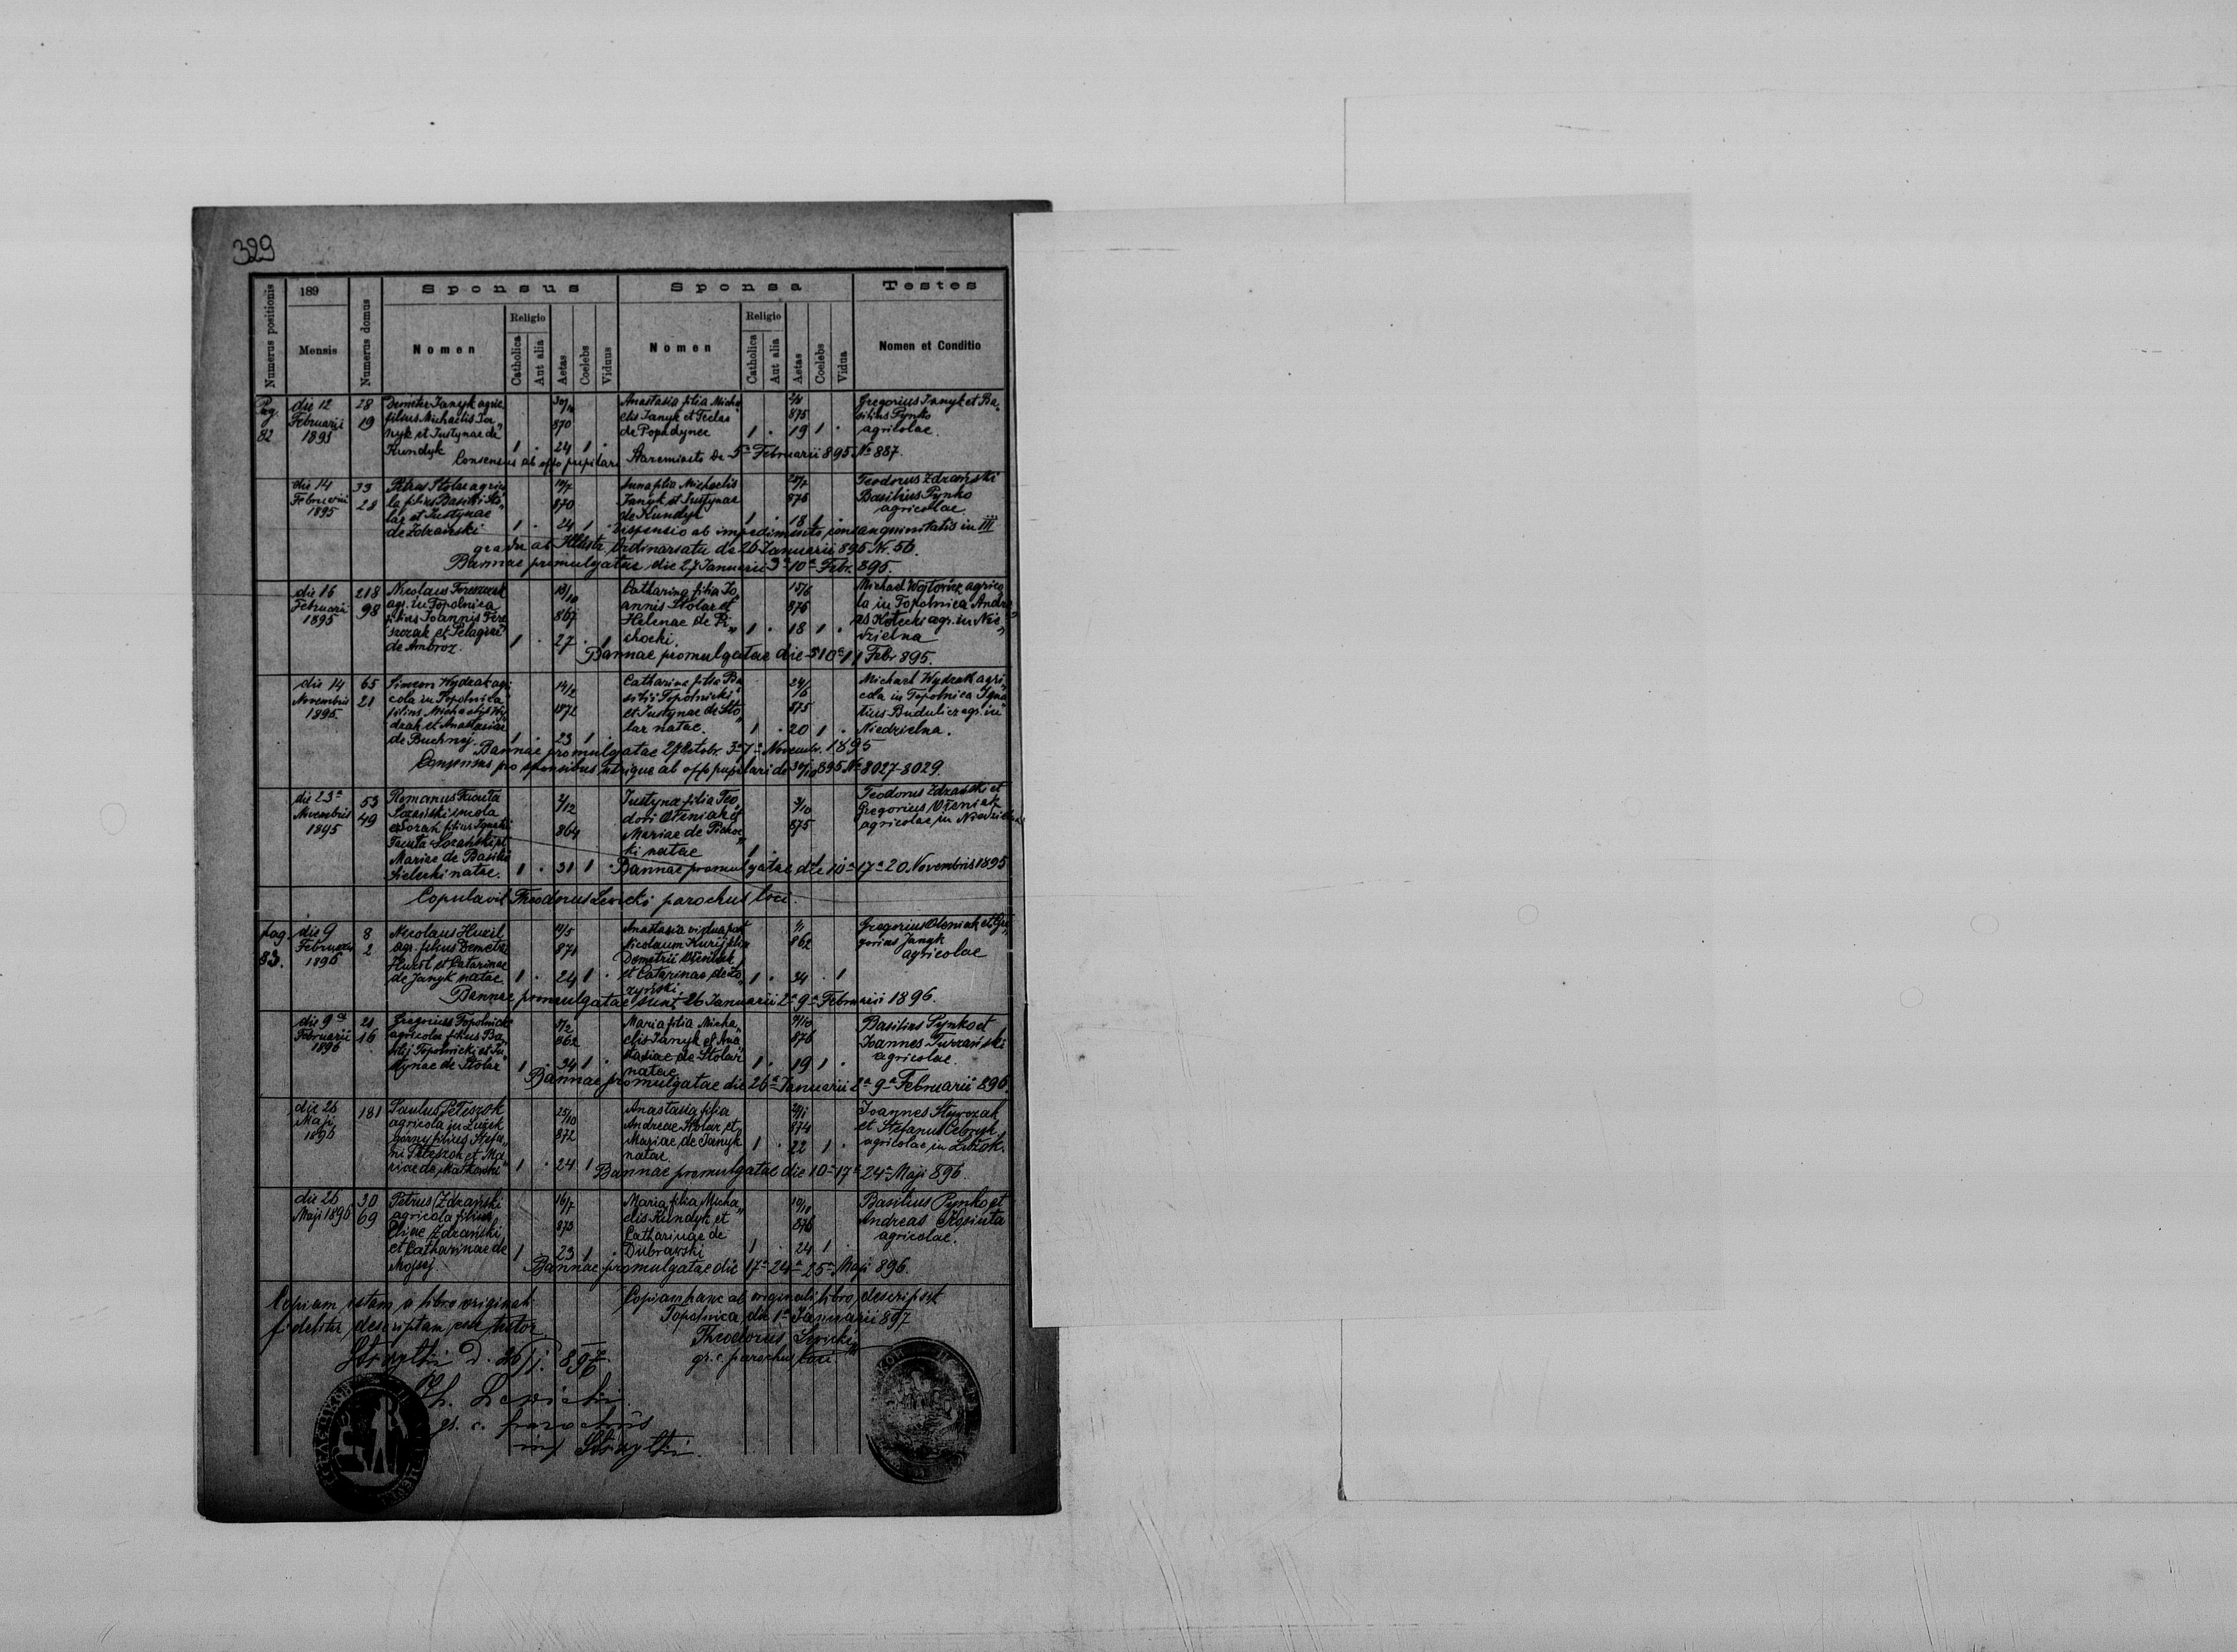 329
Numerus positionis
189
Mensis
Numerus domus
Sponsus
Sponsa
Testes
Nomen
Religio
Catholica
Aut alia
Aetas
Coelebs
Viduus
Nomen
Religio
Catholica
Aut alia
Aetas
Coelebs
Vidua
Nomen et Conditio
Pag. 82
die 12
Februarii
1895
28
19
Demeter Janyk agric.
filius Michaelis Ja„
nyk et Justynae de
Kundyk
1 . 24 1 .
870
Anastasia filia Micha„
elis Janyk et Teclae
de Popadynec
875
1 . 19 1 .
Gregorius Janyk et Ba„
silius Pynko
agricolae.
Consensus ab offo pupilari Staremiasto de 5a Februarii 895 No 887.
die 14
Februarii
1895
33
28
Petrus Stolar agrico
la filius Basilii Sto„
lar et Justynae
de Zdzański
870
1 . 24 1 .
Anna filia Michaelis
Janyk et Justynae
de Kundyk
876
1 . 18 1 .
Teodorus Zdzański
Basilius Pynko
agricolae.
Dispensio ab impedimento consanguinitatis in III
gradu ab Illustr. Ordinariatu de 26 Januarii 895 Nr. 56.
Bannae promulgatae die 27 Januarii 3a 10a Febr. 895.
die 16
Februarii
1895
218
98
Nicolaus Tereszczak
agr. in Topolnica
filius Joannis Tere
szczak et Pelagiae
de Ambroz.
867
1 . 27 . 1
Catharina filia Jo„
annis Stolar et
Helenae de Pi„
chocki.
876
1 . 18 1 .
Michael Wojtowicz agrico
la in Topolnica Andre
as Kotecki agr. in Nie„
dzielna
Bannae promulgatae die 3 10a 11 Febr 895.
die 14
Novembris
1895.
65
21
Simeon Wydrzak agri
cola in Topolnica
filius Michaelis Wy„
drzak et Anastasiae
de Buchnij.
14/2
1872
1 . 23 1 .
Catharina filia Ba„
silii Topolnicki
et Justynae de Sto„
lar natae.
24/6
875
1 . 20 1 .
Michael Wydrzak agri„
cola in Topolnica Igna„
tius Budulicz agr. in
Niedzielna.
Bannae promulgatae 27 Octobr. 3a 7a Novembr. 1895
Consensus pro sponsibus utrique ab offo pupilari de 30/10 895 No 8027-8029.
die 23a
Novembris
1895
53
49
2/12
864
1 . 31 1 .
Justyna filia Teo„
dori Oleniak et
Mariae de Pichoc„
ki natae
875
1 .
Teodorus Zdzański et
Gregorius Oleniak
agricolae in Niedzielna
Mariae de Basilio
Sielecki natae.
Bannae promulgatae die 10a 17a 20 Novembris 1895
Copulavit Theodorus Lewicki parochus loci.
pag. 83.
die 9
Februarii
1896
8
2
Nicolaus Huzil
agr. filius Demetri
Huzil et Catarinae
de Janyk natae
871
1 . 24 1 .
Anastasia vidua post
Nicolaum Kurij filia
Demetrii Oleniak
et Catarinae de Lo„
zyński.
862
1 . 34 . 1
Gregorius Oleniak et Gre„
gorius Janyk
agricolae
Bannae promulgatae sunt 26 Januarii 2a 9a Februarii 1896.
die 9a
Februarii
1896
21
16
Gregorius Topolnicki
agricola filius Ba„
silij Topolnicki et Ju„
stynae de Stolar
862
1 . 34 1 .
Maria filia Micha„
elis Janyk et Ana„
stasiae de Stolar
natae
876
1 . 19 1 .
Basilius Pynko et
Joannes Turzański
agricolae.
Bannae promulgatae die 26a Januarii 2a 9a Februarii 896
die 26
Maji
1896
181
Paulus Peleszok
agricola in Łużek
górny filius Stefa„
ni Peleszok et Ma„
riae de Matkowski
25/10
872
1 . 24 1
Anastasia filia
Andreae Stolar et
Mariae de Janyk
natae.
874
1 . 22 1 .
Joannes
et Stefanus
agricolae in Łużok.
Bannae promulgatae die 10a 17a 24a Maji 896.
die 26
Maji 1896
30
69
Petrus Zdzański
agricola filius
Eliae Zdzański
et Catharinae de
Mojsej
16/7
873
1 . 23 1 .
Maria filia Micha„
elis Kundyk et
Catharinae de
Dubrawski
876
1 . 24 1 .
Basilius Pynko et
Andreas
agricolae.
Bannae promulgatae die 17a 24a 25a Maji 896.
Copiam istam a libro originali
fideliter descriptam esse testor
Strzyłki d. 26/1. 897.
Th. Lewicki
gr. c. parochus
in Strzyłki.
Copiam hanc ab originali libro descripsit
Topolnica die 1a Januarii 897
Theodorus Lewicki
gr. c. parochus loci.